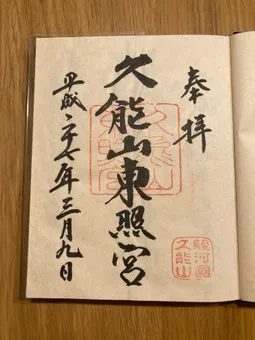 奉拝
駿河國
久能山
久能山東照宮
平成二十七年三月九日